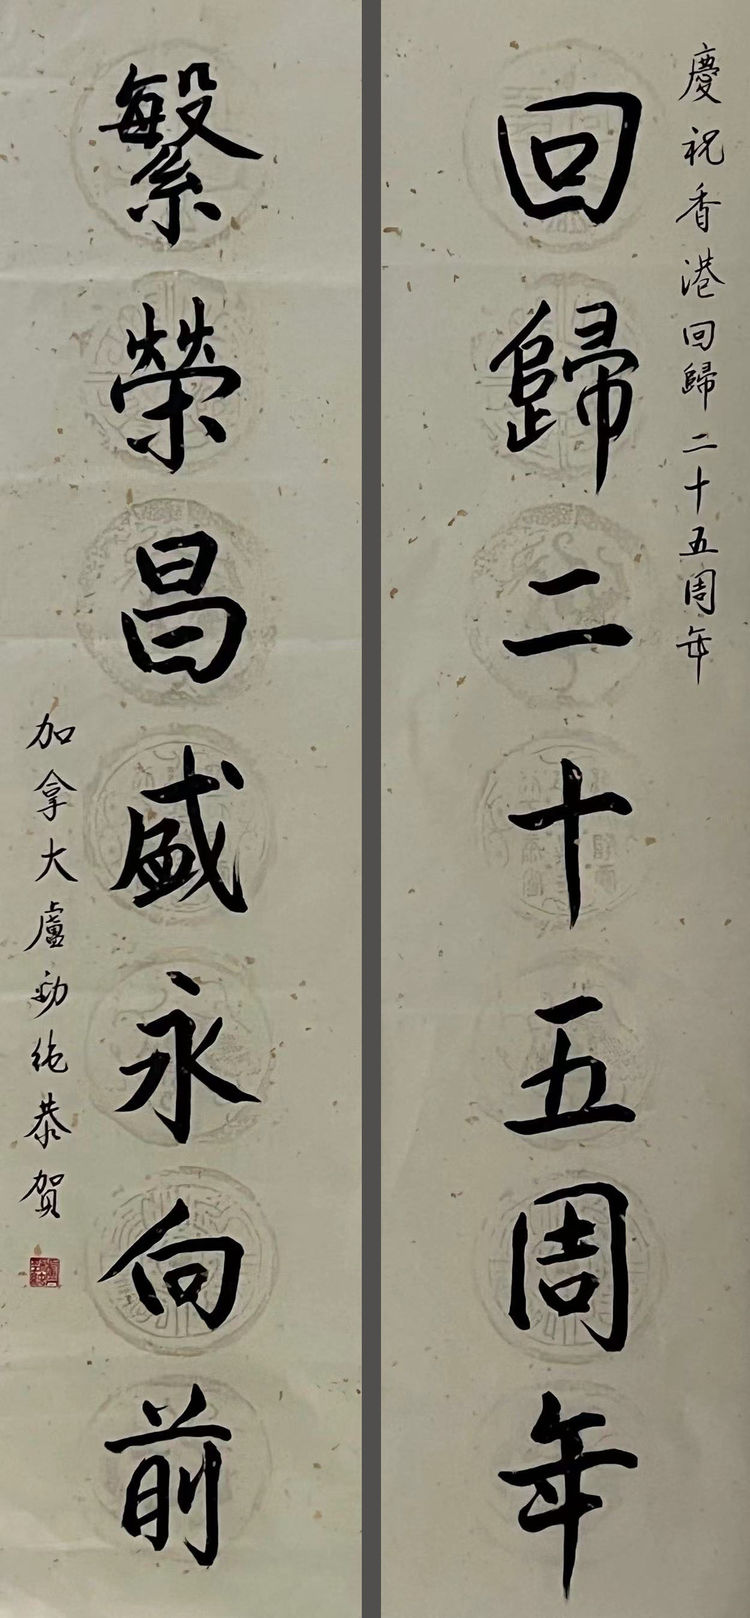 慶祝香港回歸二十五周年
回歸二十五周年
繁榮昌盛永向前
加拿大盧勁純恭賀